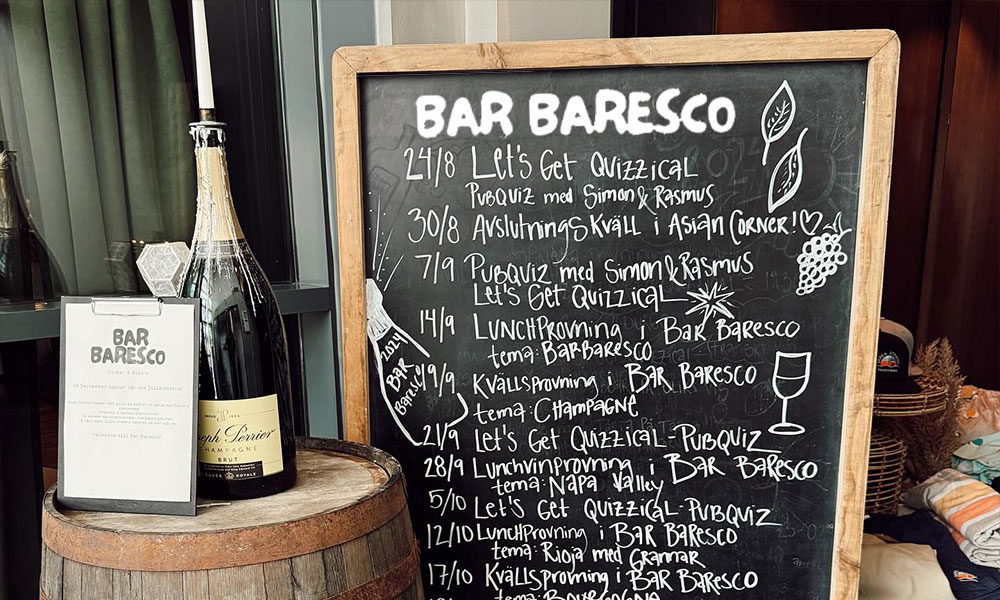 BAR BARESCO
24/8 Let's Get Quizzical
PubQuiz med Simon & Rasmus
30/8 Avslutningskväll i Asian Corner!
7/9 PubQuiz med Simon & Rasmus
Let's Get Quizzical
14/9 Lunchprovning i Bar Baresco
tema: BarBaresco
19/9 Kvällsprovning i Bar Baresco
tema: Champagne
21/9 Let's Get Quizzical - PubQuiz
28/9 Lunchvinprovning i Bar Baresco
tema: Napa Valley
5/10 Let's Get Quizzical - PubQuiz
12/10 Lunchprovning i Bar Baresco
tema: Rioja med Grannar
17/10 Kvällsprovning i Bar Baresco
tema: Bourgogne
2024
Bar
Baresco
BAR
BARESCO
seph Perrier
CHAMPAGNE
BRUT
CUVÉE ROYALE